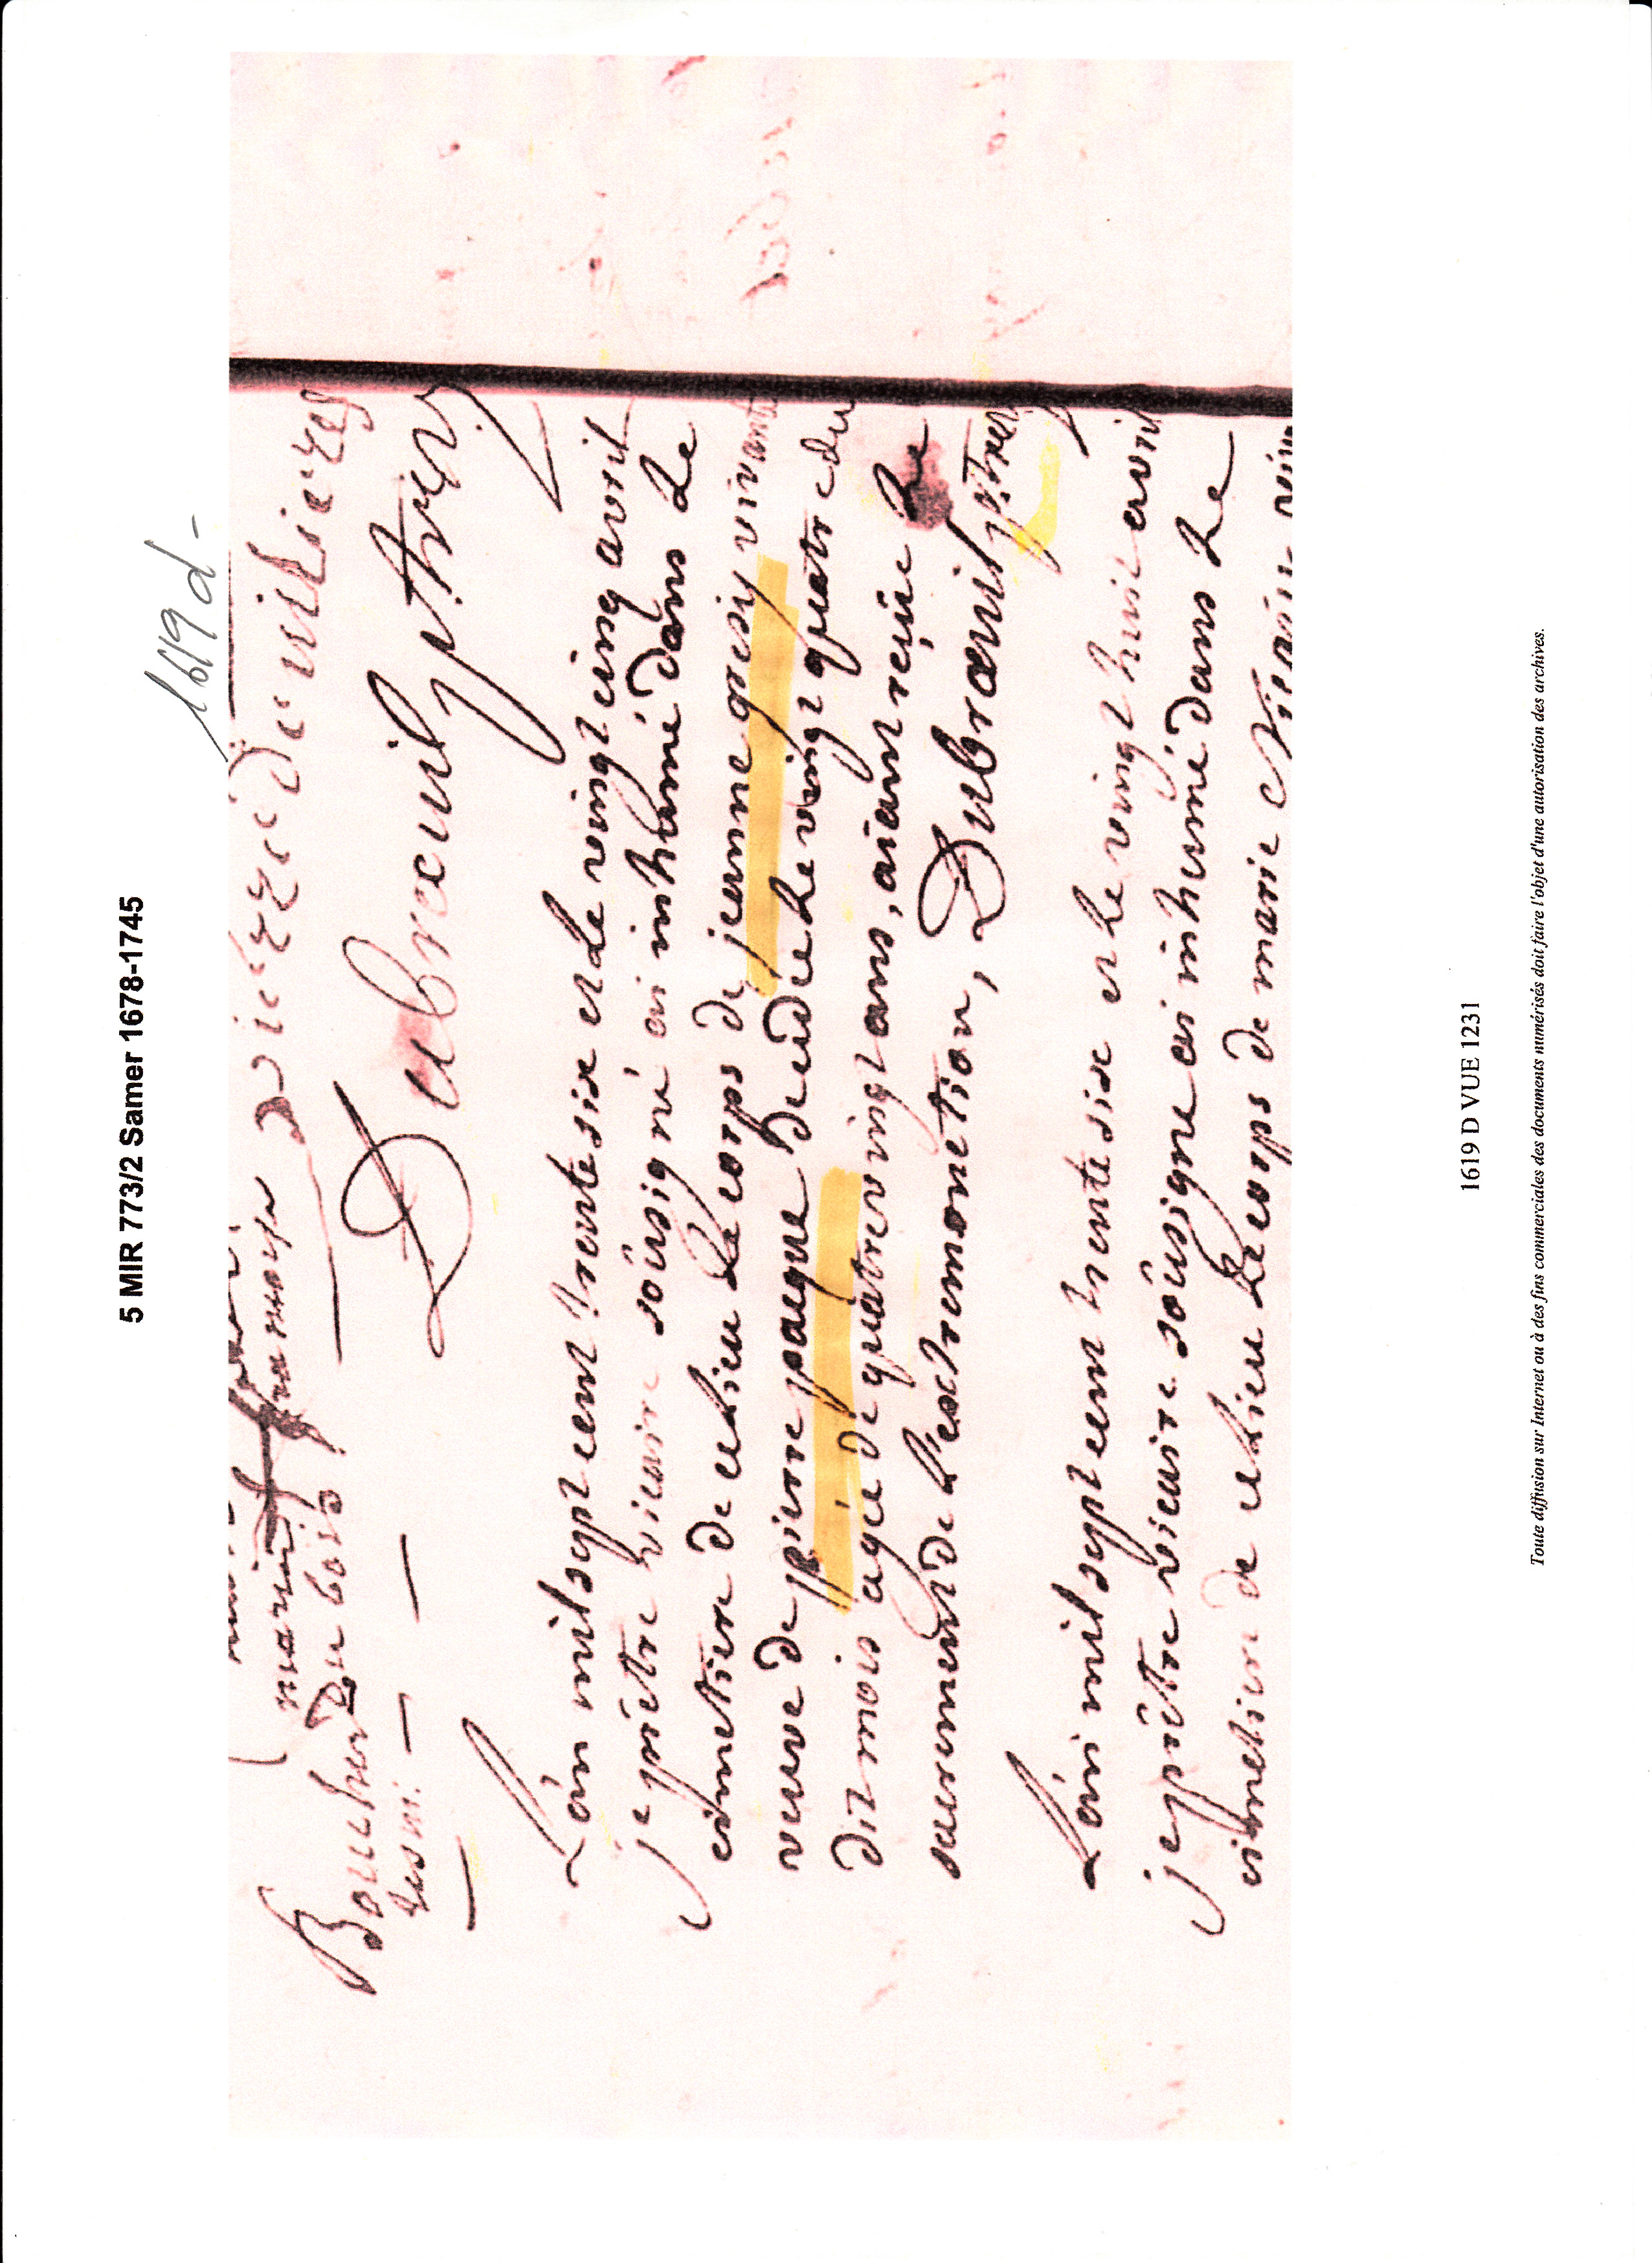 5 MIR 773/2 Samer 1678-1745
1619 d -
marin
Boucher Du bois
tesm:
Dubreuil ptre
L'an mil sept cent trente sixe et Le vingt cinq avril
je prêtre vicaire soûsigné ai inhumé dans Le
cimetiere de ce Lieu Le corps de jeanne gresy vivante
veuve de pierre paque decedée Le vingt quatre du
dit mois agée de quatrevingt ans, aiant reçûe Le
sacrement de L'extremonction, Dubrœuil ptre
L'an mil sept cent trente sixe et Le vingt huit avril
je prêtre vicaire soûsigne ai inhumé dans Le
cimetiere de ce Lieu Le corps de marie
1619 D VUE 1231
Toute diffusion sur Internet ou à des fins commerciales des documents numérisés doit faire l'objet d'une autorisation des archives.